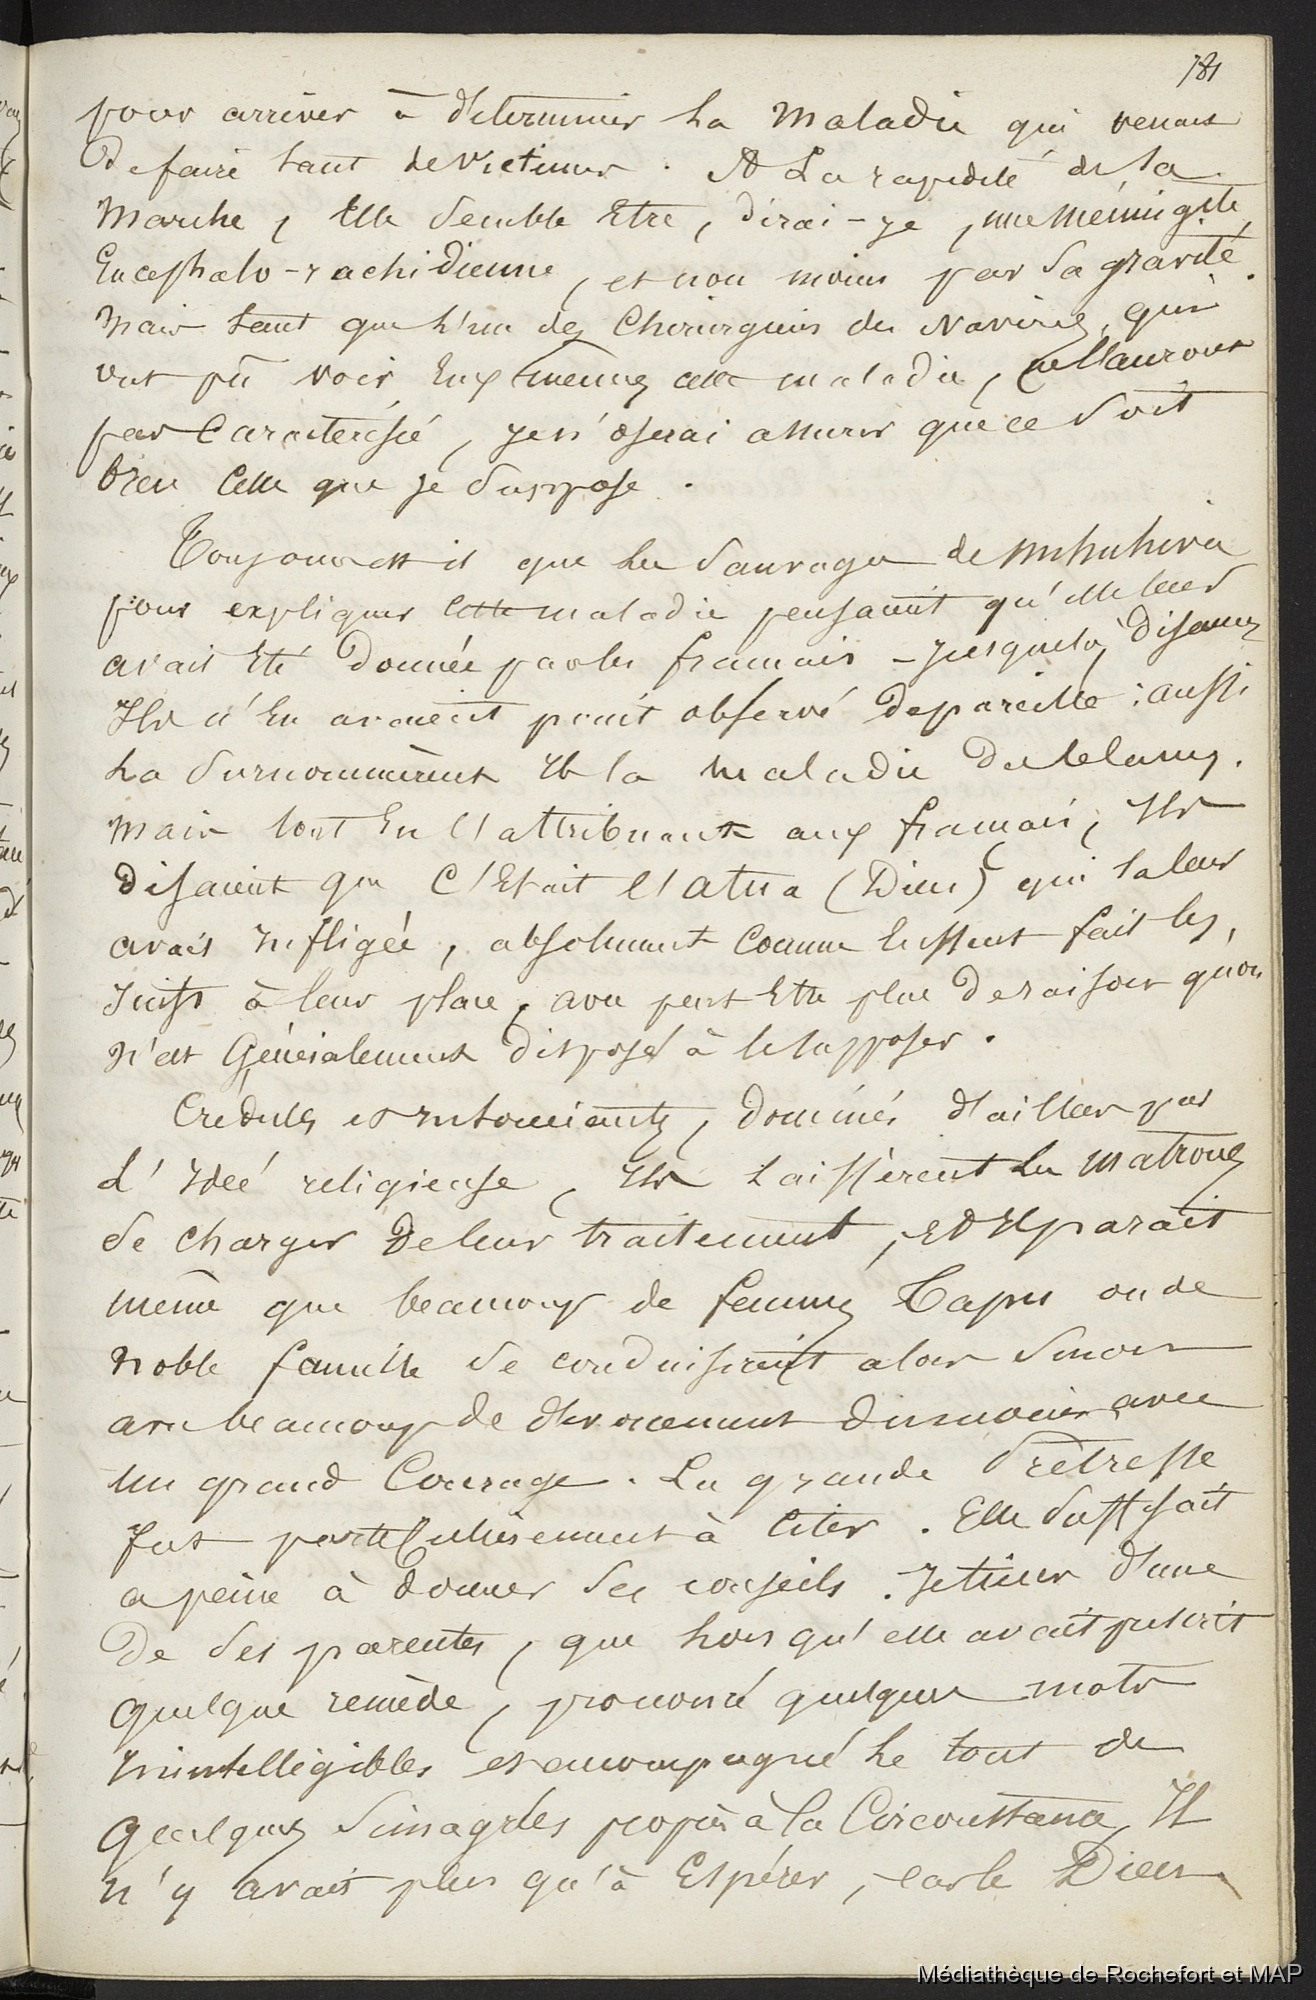 781
pour arriver à déterminer la maladie qui venait
de faire tant de victimes. A la rapidité de sa
marche, elle semble être, dirai-je, une méningite
Encephalo-rachidienne, et non moins par sa gravité.
Mais tant que l'un des Chirurgiens des Navires, qui
ont pû voir eux mêmes cette maladie, ne l'auront
pas caractérisé, je n'oserai assurer que ce soit
bien celle que je suppose.
Toujours est il que les Sauvages de
pour expliquer cette maladie pensaient qu'elle leur
avait été donnée par les français - jusques là, disaient
Ils n'en avaient point observé de pareille : aussi
la surnommèrent Ils la maladie des blancs.
Mais tout en l'attribuant aux français, Ils
disaient que c'était l'atua (Dieu) qui la leur
avait infligée, absolument comme eussent fait les
Juifs à leur place, avec peut être plus de raison qu'on
n'est Généralement disposé à le supposer.
Crédules et insouciants, dominés d'ailleurs par
L'Idée religieuse, Ils laissèrent les matrones
se charger de leur traitement, et Il parait
même que beaucoup de femmes Tapu ou de
noble famille se conduisirent alors sinon
avec beaucoup de dévouement du moins avec
un grand Courage. La grande Prêtresse
fut particulièrement à citer. Elle suffisait
a peine à donner ses conseils. Je tiens d'une
de ses parentes, que lors qu'elle avait prescrit
quelque remède, prononcé quelques mots
Inintelligibles et accompagné le tout de
quelques simagrées propres à la Circonstance, Il
n'y avait plus qu'à Espérer, car le Dieu
Médiathèque de Rochefort et MAP